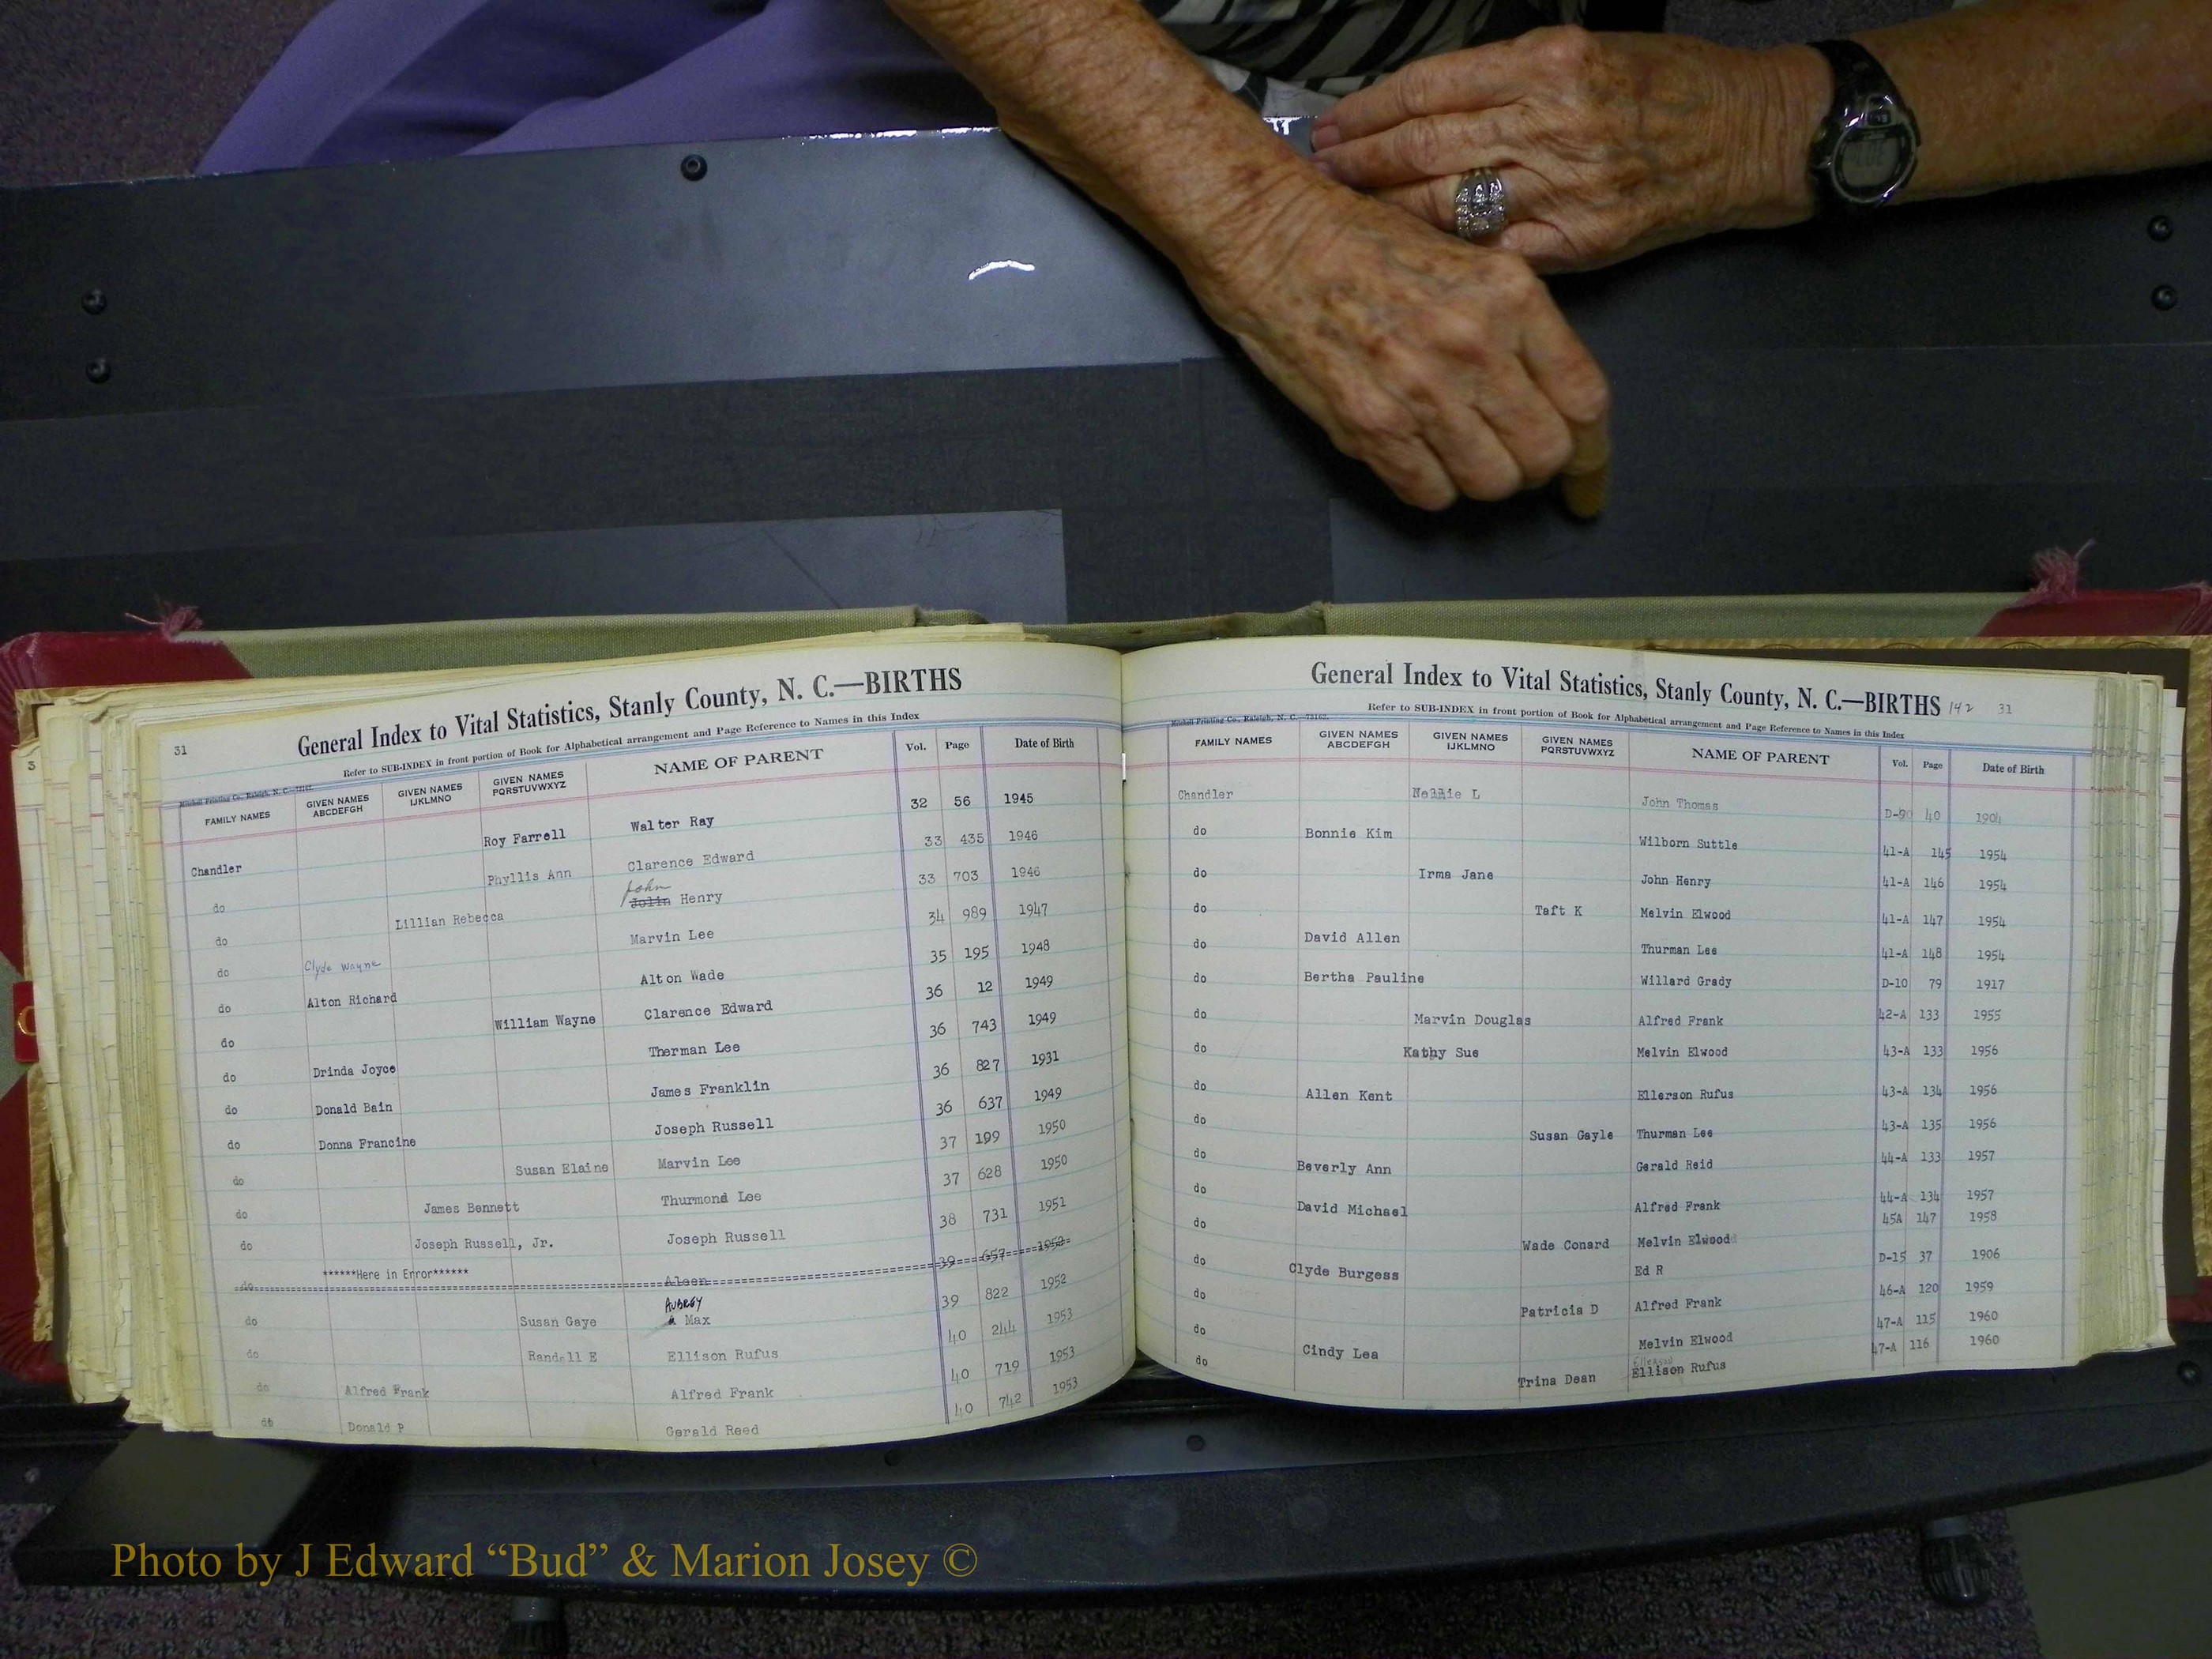 31
General Index to Vital Statistics, Stanly County, N. C.—BIRTHS
Refer to SUB-INDEX in front portion of Book for Alphabetical arrangement and Page Reference to Names in this Index
FAMILY NAMES GIVEN NAMES ABCDEFGH GIVEN NAMES IJKLMNO GIVEN NAMES PQRSTUVWXYZ NAME OF PARENT Vol. Page Date of Birth
Chandler Roy Farrell Walter Ray 32 56 1945
do Phyllis Ann Clarence Edward 33 435 1946
do Lillian Rebecca John Henry 33 703 1946
do Clyde Wayne Marvin Lee 34 989 1947
do Alton Richard Alton Wade 35 195 1948
do William Wayne Clarence Edward 36 12 1949
do Drinda Joyce Therman Lee 36 743 1949
do Donald Bain James Franklin 36 827 1931
do Donna Francine Joseph Russell 36 637 1949
do Susan Elaine Marvin Lee 37 199 1950
do James Bennett Thurmond Lee 37 628 1950
do Joseph Russell, Jr. Joseph Russell 38 731 1951
do ******Here in Error****** Aleen 39 657 1952
do Susan Gaye Aubrey Max 39 822 1952
do Randell E Ellison Rufus 40 244 1953
do Alfred Frank Alfred Frank 40 719 1953
do Donald P Gerald Reed 40 742 1953
General Index to Vital Statistics, Stanly County, N. C.—BIRTHS 142 31
Refer to SUB-INDEX in front portion of Book for Alphabetical arrangement and Page Reference to Names in this Index
FAMILY NAMES GIVEN NAMES ABCDEFGH GIVEN NAMES IJKLMNO GIVEN NAMES PQRSTUVWXYZ NAME OF PARENT Vol. Page Date of Birth
Chandler L John Thomas 40
do Bonnie Kim Wilborn Suttle 41-A 145 1954
do Irma Jane John Henry 41-A 146 1954
do Taft K Melvin Elwood 41-A 147 1954
do David Allen Thurman Lee 41-A 148 1954
do Bertha Pauline Willard Grady D-10 79 1917
do Marvin Douglas Alfred Frank 42-A 133 1955
do Kathy Sue Melvin Elwood 43-A 133 1956
do Allen Kent Ellerson Rufus 43-A 134 1956
do Susan Gayle Thurman Lee 43-A 135 1956
do Beverly Ann Gerald Reid 44-A 133 1957
do David Michael Alfred Frank 44-A 134 1957
do Wade Conard Melvin Elwood 45A 147 1958
do Clyde Burgess Ed R D-15 37 1906
do Patricia D Alfred Frank 46-A 120 1959
do Cindy Lea Melvin Elwood 47-A 115 1960
do Trina Dean Ellison Rufus 47-A 116 1960
Photo by J Edward “Bud” & Marion Josey ©